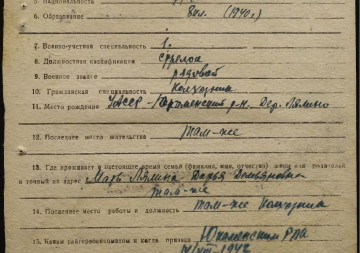 5. Национальность
6. Образование 8 кл. (1940г.)
7. Военно-учетная специальность 1.
8. Должностная квалификация стрелок
9. Военное звание рядовой
10. Гражданская специальность колхозник
11. Место рождения УАССР - р-н. дер. Лялино
12. Последнее место жительства там-же
13. Где проживает в настоящее время семья (фамилия, имя, отчество) жены или родителей
и точный их адрес Мать Лялина Дарья Демьяновна
там-же
14. Последнее место работы и должность там-же колхозник
15. Каким райгорвоенкоматом и когда призван Юкаменским РВК
1942